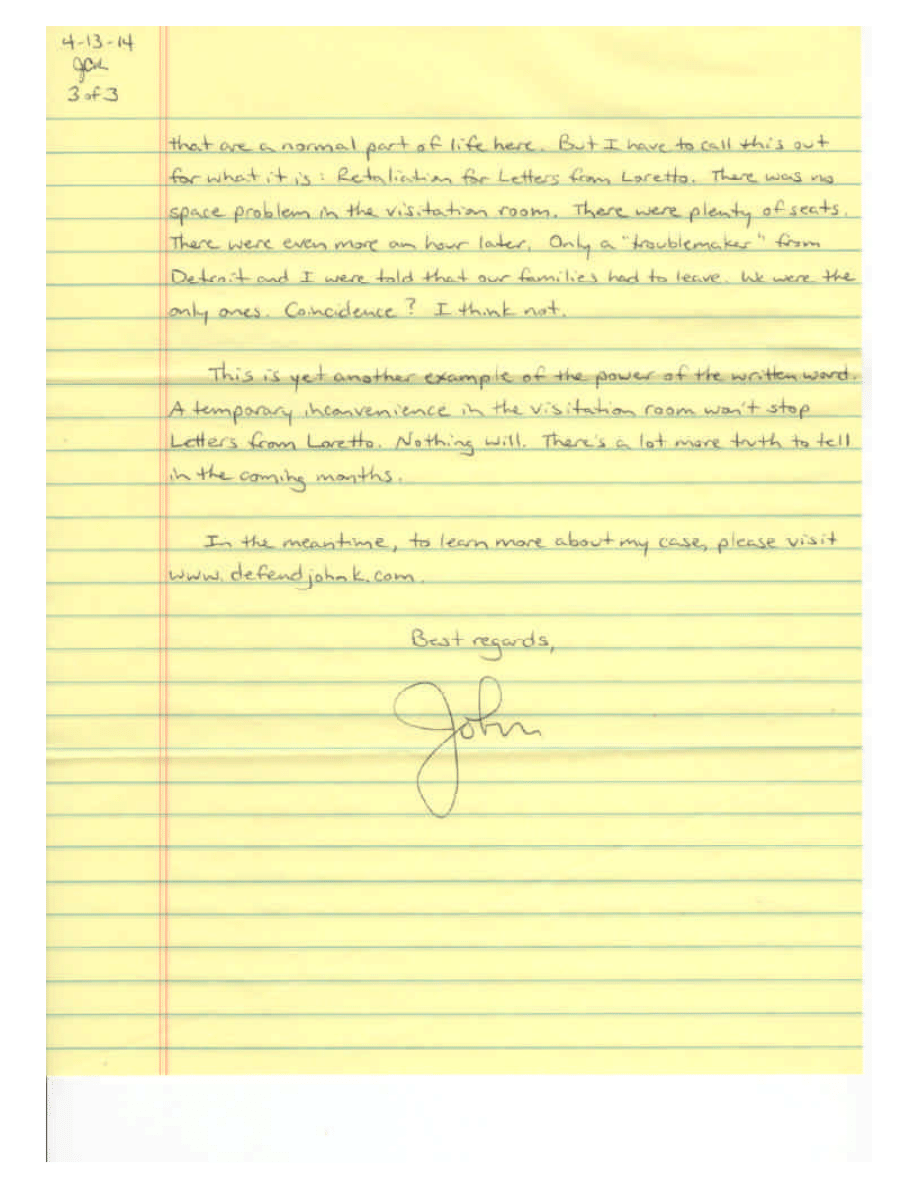 4-13-14
JCK
3 of 3
that are a normal part of life here. But I have to call this out
for what it is: Retaliation for Letters from Loretto. There was no
space problem in the visitation room. There were plenty of seats.
There were even more an hour later. Only a "troublemaker" from
Detroit and I were told that our families had to leave. We were the
only ones. Coincidence? I think not.
This is yet another example of the power of the written word.
A temporary inconvenience in the visitation room won't stop
Letters from Loretto. Nothing will. There's a lot more truth to tell
in the coming months.
In the meantime, to learn more about my case, please visit
www.defendjohnk.com.
Best regards,
John